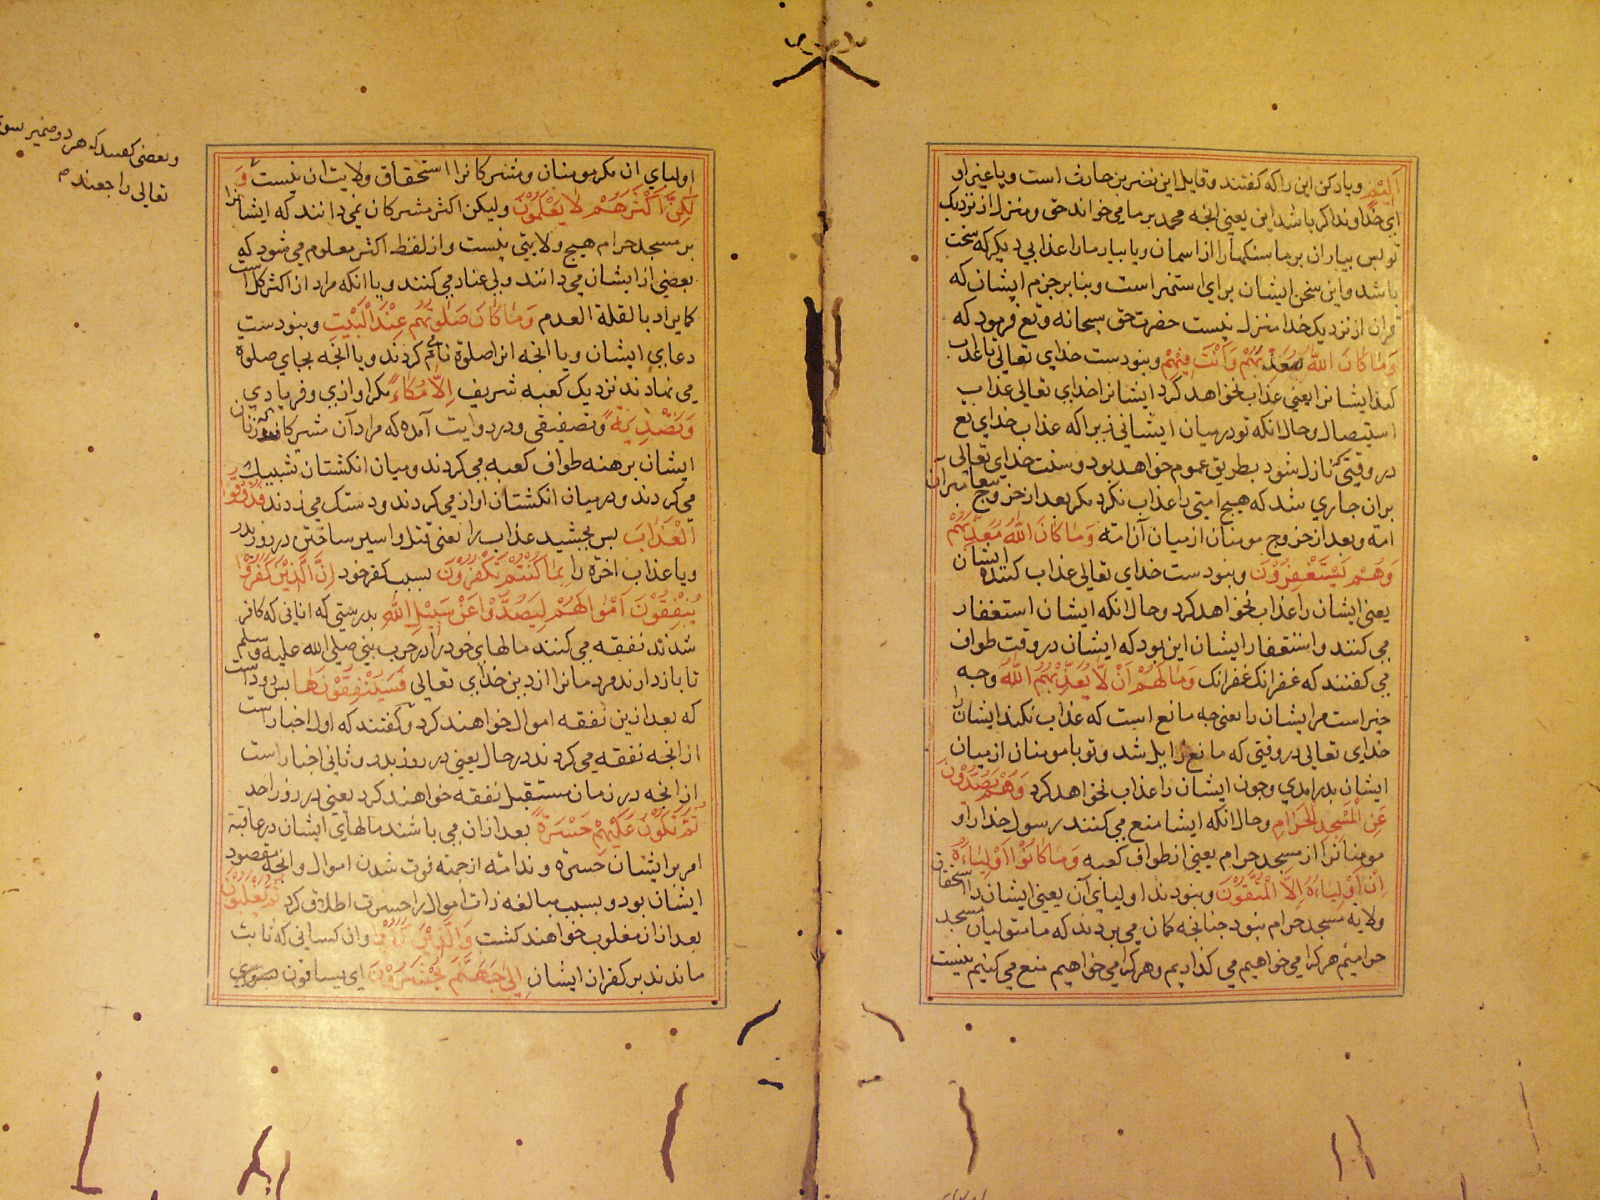 اَلِيْمٍ و یاد کن این را که گفتند و قایل این نضر بن حارث است و یا غیر او
ای خداوندا اکر باشد این یعنی انچه محمد بر ما می خواند حق و منزل از نزدیک
تو پس بباران بر ما سنکها را از اسمان و یا بیار ما را عذابی دیکر که سخت
باشد و این سخن ایشان برای استهزا است و بنا بر جزم ایشان که
قران از نزدیک خدا منزل نیست حضرت حق سبحانه و تع فرمود که
وَمَا كَانَ اللّٰهُ لِيُعَذِّبَهُمْ وَاَنْتَ فِيْهِمْ و نبودست خدای تعالی تا عذاب
کند ایشانرا یعنی عذاب نخواهد کرد ایشانرا خدای تعالی عذاب
استیصال و حال انکه تو در میان ایشانی زیرا که عذاب خدای تع
در وقتی که نازل شود بطریق عموم خواهد بود و سنت خدای تعالی
بران جاری شد که هیچ امتی را عذاب نکرد مکر بعد از خروج پیغامبر آن
امة و بعد از خروج مومنان از میان آن امة وَمَا كَانَ اللّٰهُ مُعَذِّبَهُمْ
وَهُمْ يَسْتَغْفِرُوْنَ و نبودست خدای تعالی عذاب کننده ایشان
یعنی ایشان را عذاب نخواهد کرد و حال انکه ایشان استغفار
می کنند و استغفار ایشان این بود که ایشان در وقت طواف
می کفتند که غفرانک غفرانک وَمَا لَهُمْ اَنْ لَّا يُعَذِّبَهُمُ اللّٰهُ و چه
چیز است مر ایشان را یعنی چه مانع است که عذاب نکند ایشان را
خدای تعالی در وقتی که مانع زایل شد و تو با مومنان از میان
ایشان بدر امدی و چون ایشان را عذاب نخواهد کرد وَهُمْ يَصُدُّوْنَ
عَنِ الْمَسْجِدِ الْحَرَامِ و حال انکه ایشا منع می کنند رسول خدا را و
مومنانرا از مسجد حرام یعنی از طواف کعبه وَمَا كَانُوْا اَوْلِيَاءَهُ
اِنْ اَوْلِيَاءُهُ اِلَّا الْمُتَّقُوْنَ و نبودند اولیای آن یعنی ایشان را استحقاق
ولایة مسجد حرام نبود چنانچه کمان می بردند که ما متولیان مسجد
حرامیم هر کرا می خواهیم می کذاریم و هر کرا می خواهیم منع می کنیم نیست
اولیای ان مکر مومنان و مشرکانرا استحقاق ولایت ان نیست وَ
لٰكِنَّ اَكْثَرَهُمْ لَا يَعْلَمُوْنَ و لیکن اکثر مشرکان نمی دانند که ایشانرا
بر مسجد حرام هیچ ولایتی نیست و از لفظ اکثر معلوم می شود که
بعضی از ایشان می دانند ولی عناد می کنند و یا انکه مراد از اکثر کل است
کما یراد بالقلة العدم وَمَا كَانَ صَلٰوتُهُمْ عِنْدَ الْبَيْتِ و نبودست
دعای ایشان و یا انچه انرا صلوة نام کردند و یا انچه بجای صلوة
می نهادند نزدیک کعبه شریف اِلَّا مُكَاءً مکر اوازی و فریادی
وَتَصْدِيَةً و تصفیقی و در روایت آمده که مراد آن مشرکان زنان
ایشان برهنه طواف کعبه می کردند و میان انکشتان شبیک
می کردند و در میان انکشتان اواز می کردند و دستک می زدند فَذُوْقُوا
الْعَذَابَ پس بچشید عذاب را یعنی قتل و اسیر ساختن در روز بدر
و یا عذاب اخرة را بِمَا كُنْتُمْ تَكْفُرُوْنَ بسبب کفر خود اِنَّ الَّذِيْنَ كَفَرُوْا
يُنْفِقُوْنَ اَمْوَالَهُمْ لِيَصُدُّوْا عَنْ سَبِيْلِ اللّٰهِ بدرستی که انانی که کافر
شدند نفقه می کنند مالهای خود را در حرب نبی صلی الله علیه وسلم
تا باز دارند مردمانرا از دین خدای تعالی فَسَيُنْفِقُوْنَهَا پس زودست
که بعد ازین نفقه اموال خواهند کرد و کفتند که اول اخبار است
از انچه نفقه می کردند در حال یعنی در روز بدر و ثانی اخبار است
از انچه در زمان مستقبل نفقه خواهند کرد یعنی در روز احد
ثُمَّ تَكُوْنُ عَلَيْهِمْ حَسْرَةً بعد ازان می باشند مالهای ایشان در عاقبة
امر بر ایشان حسرة و ندامة از جهة فوت شدن اموال و انچه مقصود
ایشان بود و بسبب مبالغه ذات اموال را حسرت اطلاق کرد ثُمَّ يُغْلَبُوْنَ
بعد ازان مغلوب خواهند کشت وَالَّذِيْنَ كَفَرُوْا و ان کسانی که ثابت
ماندند بر کفر از ایشان اِلٰى جَهَنَّمَ يُحْشَرُوْنَ ای یساقون
و بعضی کفتند که هر دو ضمیر سوی
تعالی راجعند